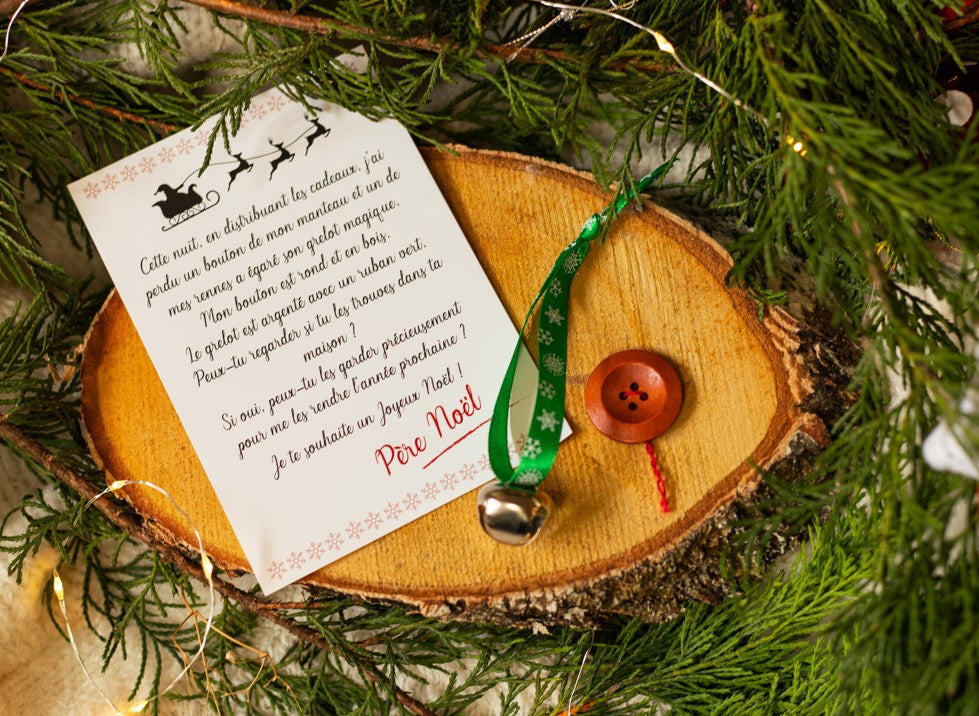 Cette nuit, en distribuant les cadeaux, j'ai
perdu un bouton de mon manteau et un de
mes rennes a égaré son grelot magique.
Mon bouton est rond et en bois.
Le grelot est argenté avec un ruban vert.
Peux-tu regarder si tu les trouves dans ta
maison ?
Si oui, peux-tu les garder précieusement
pour me les rendre l'année prochaine ?
Je te souhaite un Joyeux Noël !
Père Noël